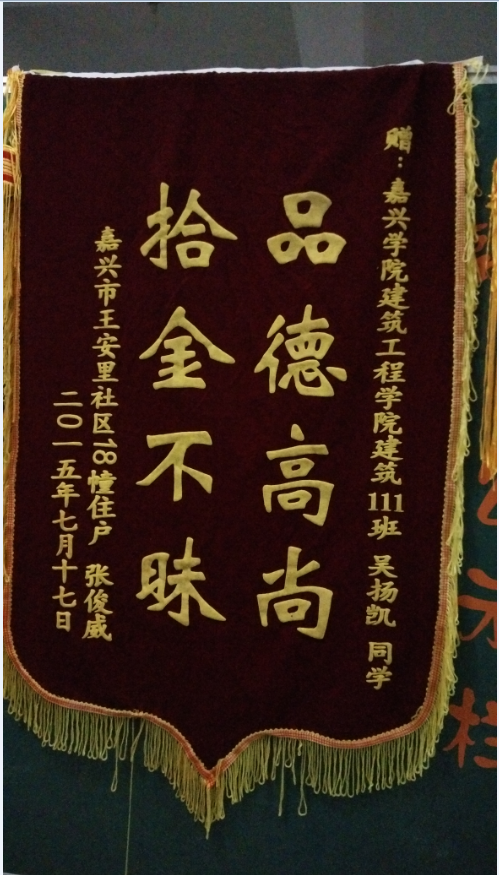 赠：嘉兴学院建筑工程学院建筑111班 吴扬凯 同学
品德高尚
拾金不昧
嘉兴市王安里社区18幢住户 张俊威
二〇一五年七月十七日
示栏